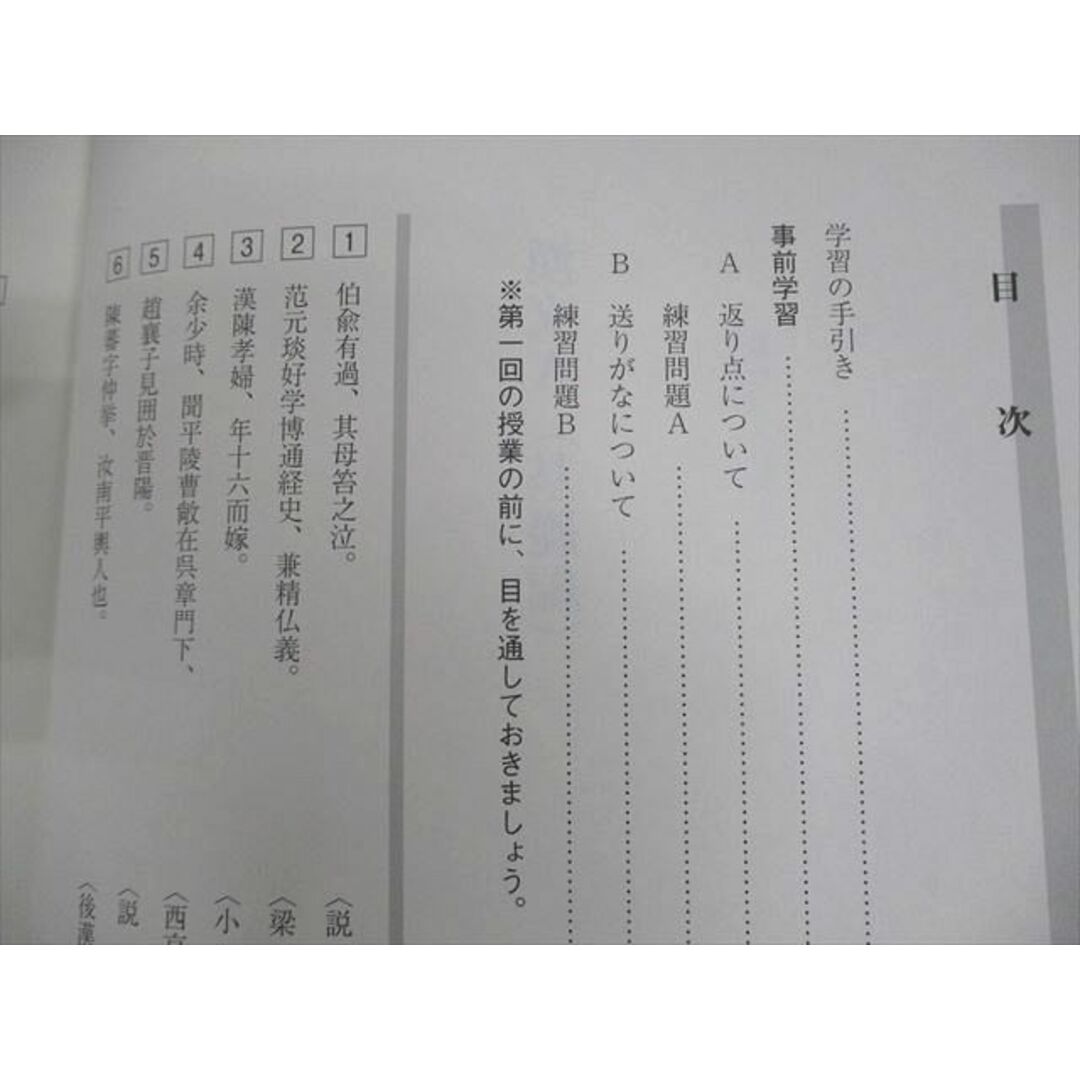 目次
学習の手引き
事前学習
A 返り点について
練習問題A
B 送りがなについて
練習問題B
※第一回の授業の前に、目を通しておきましょう。
1 伯兪有過、其母笞之泣。 〈説
2 范元琰好学博通経史、兼精仏義。 〈梁
3 漢陳孝婦、年十六而嫁。 〈小
4 余少時、聞平陵曹敞在呉章門下、 〈西京
5 趙襄子見囲於晋陽。 〈説
6 陳蕃字仲挙、汝南平輿人也。 〈後漢